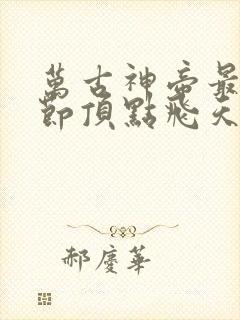 萬古神帝最
節頂點飛天
郝慶華